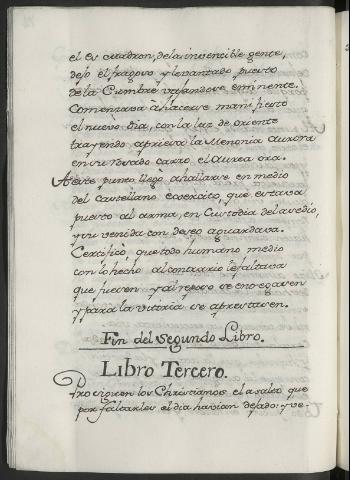 el es quadron, de la invencible gente,
dejo el fragoso y levantado puesto
de la Cumbre vajandose eminente.
Comensava à hacerse manifiesto
el nuevo dia, con la luz de oriente
trayendo apriesa la Menonia aurora
en su rosado carro el Aurea ora.
A este punto llegò a hallarse en medio
del Castellano exercito, que estava
puesto al arma, en Custodia del asedio,
y su venida con deseo aguardava.
Certificò, que todo humano medio
con lo hecho al contrario le faltava
que fuesen y al reparo se entregasen
y para la vitoria se aprestasen.
Fin del Segundo Libro.
Libro Tercero.
Prosiguen los Christianos el asalto que
por faltarles el dia havian dejado: y se